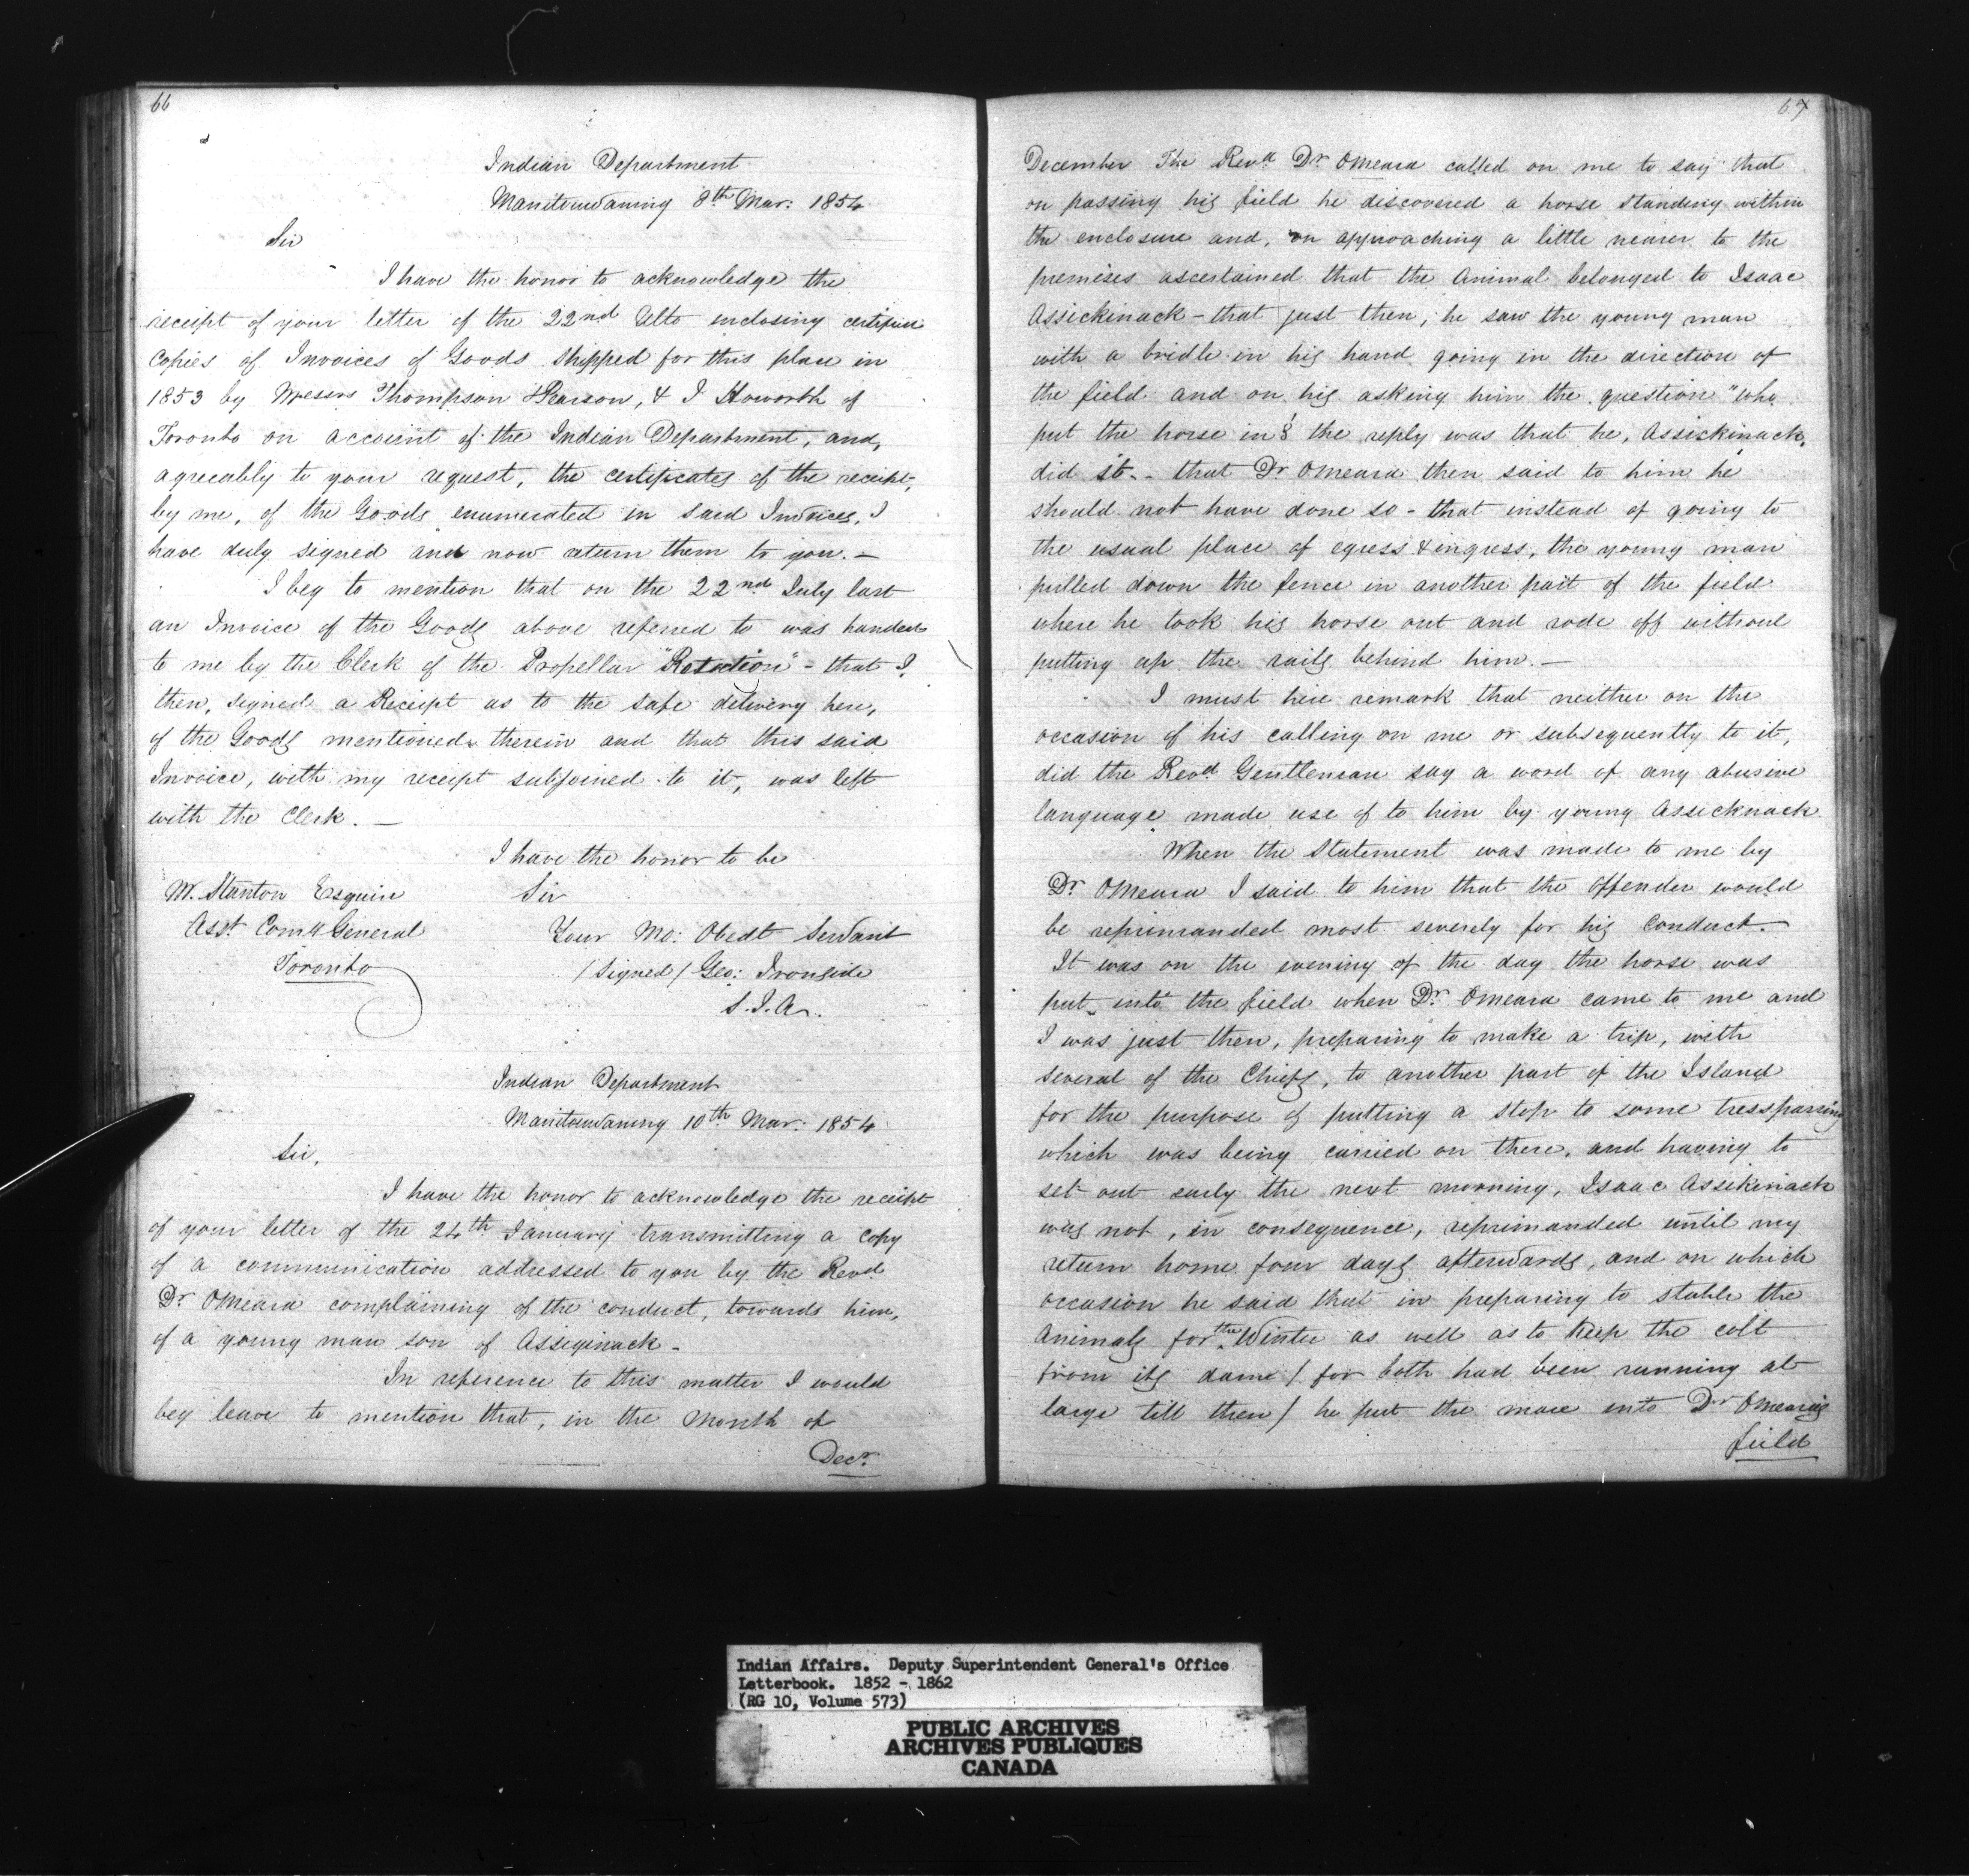 66
Indian Department
Manitouwaning 8th Mar: 1854
Sir
I have the honor to acknowledge the
receipt of your letter of the 22nd Ulto enclosing certified
copies of Invoices of Goods shipped for this place in
1853 by Messrs Thompson & Pearson, & J Howorth of
Toronto on account of the Indian Department, and,
agreeably to your request, the certificates of the receipt,
by me, of the Goods enumerated in said Invoices, I
have duly signed and now return them to you. —
I beg to mention that on the 22nd July last
an Invoice of the Goods above referred to was handed
to me by the Clerk of the Propellar "Rotation" - that I,
then, signed a Receipt as to the safe delivery here,
of the Goods mentioned therein and that this said
Invoice, with my receipt subjoined to it, was left
with the Clerk. —
I have the honor to be
W. Stanton Esquire Sir
Asst Comy General Your Mo: Obedt Servant
Toronto /Signed/ Geo: Ironside
S. I. A.
Indian Department
Manitouwaning 10th Mar: 1854
Sir,
I have the honor to acknowledge the receipt
of your letter of the 24th January transmitting a copy
of a communication addressed to you by the Revd
Dr OMeara complaining of the conduct, towards him,
of a young man son of Assiginack -
In reference to this matter I would
beg leave to mention that, in the month of
Decr
67
December The Revd Dr OMeara called on me to say that
on passing his field he discovered a horse standing within
the enclosure and, on approaching a little nearer to the
premises ascertained that the Animal belonged to Isaac
Assickinack - that just then, he saw the young man
with a bridle in his hand going in the direction of
the field and on his asking him the question "who
put the horse in? the reply was that he, Assickinack,
did it - that Dr OMeara then said to him he
should not have done so - that instead of going to
the usual place of egress & ingress, the young man
pulled down the fence in another part of the field
where he took his horse out and rode off without
putting up the rails behind him. —
I must here remark that neither on the
occasion of his calling on me or subsequently to it,
did the Revd Gentleman say a word of any abusive
language made use of to him by young Assicknack
When the Statement was made to me by
Dr OMeara I said to him that the offender would
be reprimanded most severely for his conduct.
It was on the evening of the day the horse was
put into the field when Dr OMeara came to me and
I was just then, preparing to make a trip, with
several of the Chiefs, to another part of the Island
for the purpose of putting a stop to some tresspassing
which was being carried on there, and having to
set out early the next morning, Isaac Assikinack
was not, in consequence, reprimanded until my
return home four days afterwards, and on which
occasion he said that in preparing to stable the
Animals for the Winter as well as to keep the colt
from its dame / for both had been running at
large till then / he put the mare into Dr OMearas
field
Indian Affairs. Deputy Superintendent General's Office
Letterbook. 1852 - 1862
(RG 10, Volume 573)
PUBLIC ARCHIVES
ARCHIVES PUBLIQUES
CANADA